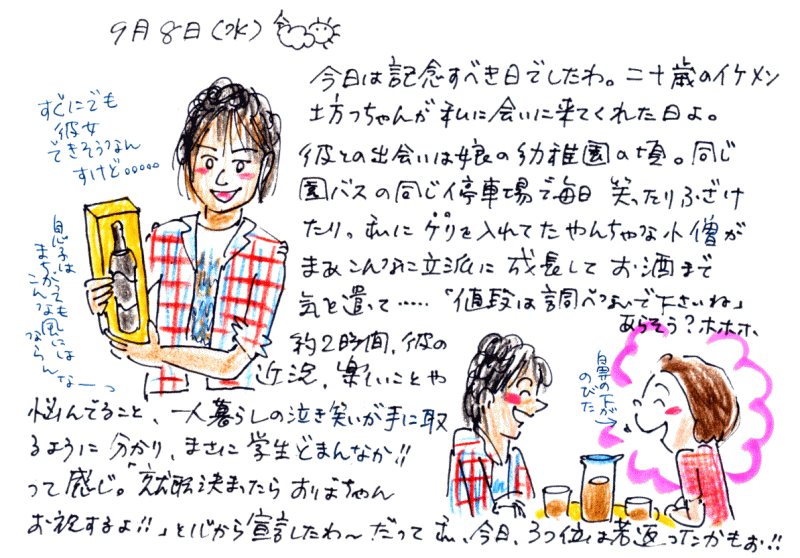 9月8日(水)
今日は記念すべき日でしたわ。二十歳のイケメン
坊っちゃんが私に会いに来てくれた日よ。
彼との出会いは娘の幼稚園の頃。同じ
園バスの同じ停車場で毎日 笑ったりふざけ
たり。私にゲリを入れてたやんちゃな小僧が
まぁこんなに立派に成長して お酒まで
気を遣って……「値段は調べないで下さいね」
あらそう?ホホホ、
約2時間、彼の
近況、楽しいことや
悩んでること、一人暮らしの泣き笑いが手に取
るように分かり、まさに学生どまんなか!!
って感じ。「就職決まったら おばちゃん
お祝するよ!!」と心から宣言したわ〜 だって私、今日、3つ位は若返ったかもぉ!!
すぐにでも
彼女
できそうなん
すけど。。。。。
息子は
まちがっても
こんな風には
ならんなーっ
鼻の下が
のびた